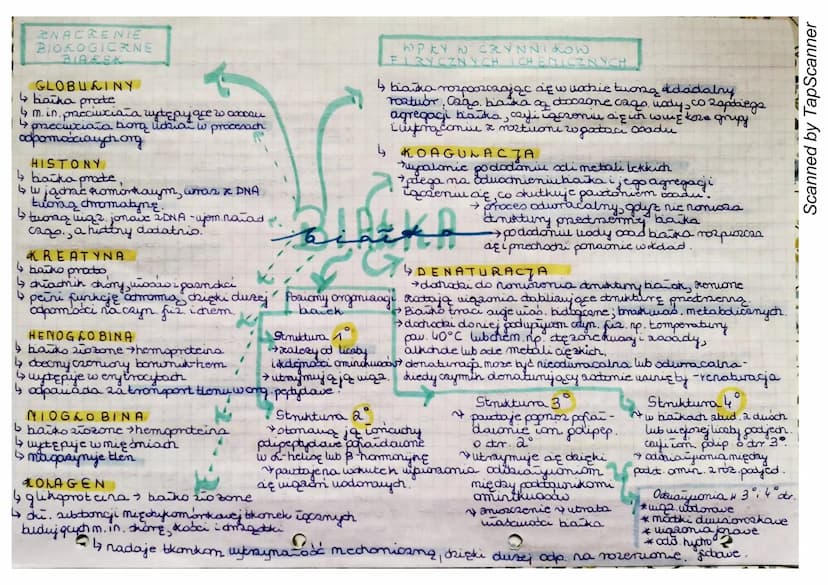 ZNACZENIE
BIOLOGICZNE
BIAŁEK
GLOBULINY
↳ białka proste
↳ m.in. przeciwciała występujące w osoczu
↳ przeciwciała biorą udział w procesach
odpornościowych org
HISTONY
↳ białka proste
↳ w jądrze komórkowym, wraz z DNA
tworzą chromatynę.
↳ tworzą wiąz. jonowe z DNA - ujemna ład
cząs., a histony dodatnio.
KREATYNA
↳ białko proste
↳ składnik skóry, włosów i paznokci
↳ pełni funkcję ochronną, dzięki dużej
odporności na czyn. fiz i chem.
HEMOGLOBINA
↳ białko złożone → hemoproteina
↳ obecny czerwony barwnik - hem
↳ występuje w erytrocytach
↳ odpowiada za transport tlenu w org.
MIOGLOBINA
↳ białko złożone → hemoproteina
↳ występuje w mięśniach
↳ magazynuje tlen
KOLAGEN
↳ glikoproteina → białko złożone
↳ skł. substancji międzykomórkowej tkanek łącznych
budujących m.in. skórę, kości i chrząstki
↳ nadaje tkankom wytrzymałość mechaniczną, dzięki dużej odp. na rozerwanie.
BIAŁKA
białka
WPŁYW CZYNNIKÓW
FIZYCZNYCH I CHEMICZNYCH
↳ białka rozpuszczając się w wodzie tworzą układ
roztwór. Cząs. białka są otoczone cząs. wody, co zapobiega
agregacji białka, czyli łączeniu się ich w większe grupy
i wytrąceniu z roztworu w postaci osadu
KOAGULACJA
→ wysalanie po dodaniu soli metali lekkich
→ polega na odwodnieniu białka i jego agregacji
łączeniu się, co skutkuje powstaniem osadu.
→ proces odwracalny, gdyż nie narusza
struktury przestrzennej białka
→ po dodaniu wody osad białka rozpuszcza
się i przechodzi ponownie w układ.
DENATURACJA
→ dochodzi do naruszenia struktury białek, zerwane
zostają wiązania stabilizujące strukturę przestrzenną
→ Białko traci swoje wł. biologiczne; brak wł. metabolicznych
→ dochodzi do niej pod wpływem czyn. fiz. np. temperatury
pow. 40°C lub chem. np. stężone kwasy i zasady,
alkohole lub sole metali ciężkich.
→ denaturacja może być nieodwracalna lub odwracalna -
kiedy czynnik denaturujący zostanie usunięty - renaturacja
Poziomy organizacji
białek
Struktura 1°
→ zależy od liczby
i kolejności aminokwasów
→ utrzymują ją wiąz.
peptydowe.
Struktura 2°
→ stanowią ją łańcuchy
polipeptydowe pofałdowane
w α-helisę lub β-harmonijkę
→ powstaje na skutek wytwarzania
się wiązań wodorowych.
Struktura 3°
→ powstaje poprzez pofał-
dowanie łań. polipep.
o str. 2°
→ utrzymuje się dzięki
oddziaływaniom
między podstawnikami
aminokwasów
→ zniszczenie → utrata
właściwości białka
Struktura 4°
→ w białkach zbud. z dwóch
lub więcej liczby podjedn.
czyli łań. polip. o str 3°.
→ oddziaływania między
podst. amin. z róż. podjed.
Oddziaływania w 3° i 4° str.
* wiąz wodorowe
* mostki dwusiarczkowe
* wiązania jonowe
* odd. hydro-
fobowe.
Scanned by TapScanner